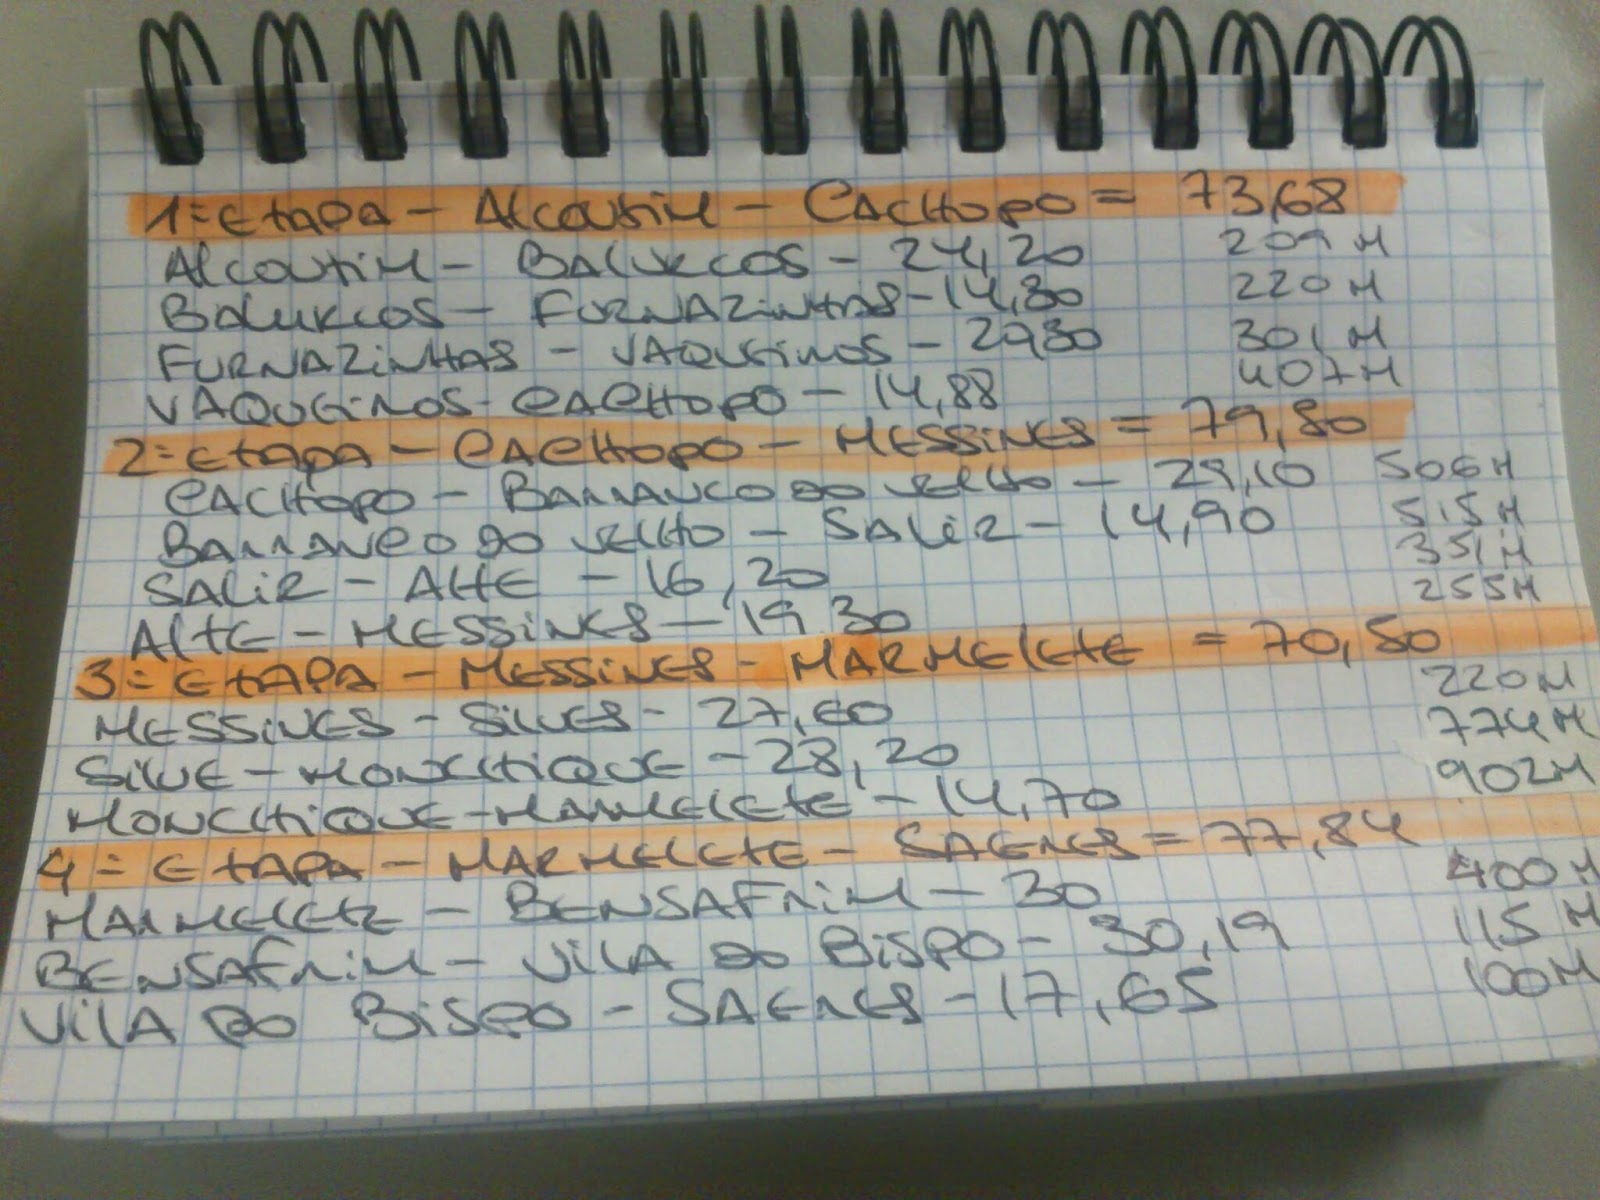 1= EtAPA - Alcoutim - CACHOPO = 73,68
Alcoutim - BALURCOS - 24,20 209 M
BALURCOS - FURNAZINHAS - 14,30 220 M
FURNAZINHAS - VAQUEIROS - 20,30 301 M
VAQUEIROS - CACHOPO - 14,88 407 M
2= EtAPA - CACHOPO - MESSINES = 79,50
CACHOPO - BARRANCO DO VELHO - 29,10 506 M
BARRANCO DO VELHO - SALIR - 14,90 515 M
SALIR - AltE - 16,20 351 M
AltE - MESSINES - 19.30 255 M
3= EtAPA - MESSINES - MARMELEtE = 70,50
MESSINES - SILVES - 27,60 220 M
SILVE - MONCHIQUE - 28,20 774 M
MONCHIQUE - MARMELEtE - 14,70 902 M
4= EtAPA - MARMELEtE - SAGRES = 77,84
MARMELEtE - BENSAFRIM - 30 400 M
BENSAFRIM - VILA DO BISPO - 30,19 115 M
VILA DO BISPO - SAGRES - 17,65 100 M